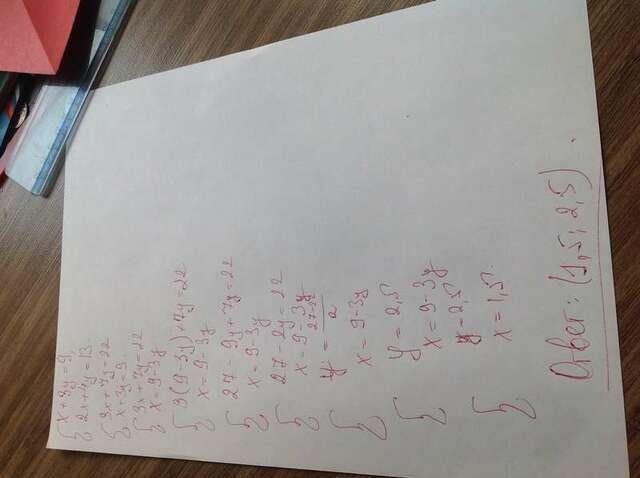 { x + 3y = 9,
2x + 4y = 13.
{ 3x + 7y = 22
x + 3y = 9.
{ 3x + 7y = 22
x = 9 - 3y
{ 3(9 - 3y) + 7y = 22
x = 9 - 3y
{ 27 - 9y + 7y = 22
x = 9 - 3y
{ 27 - 2y = 22
x = 9 - 3y
{ y = 27-22/2
x = 9 - 3y
{ y = 2,5
x = 9 - 3y
{ y = 2,5
x = 1,5.
Ответ: (1,5; 2,5).